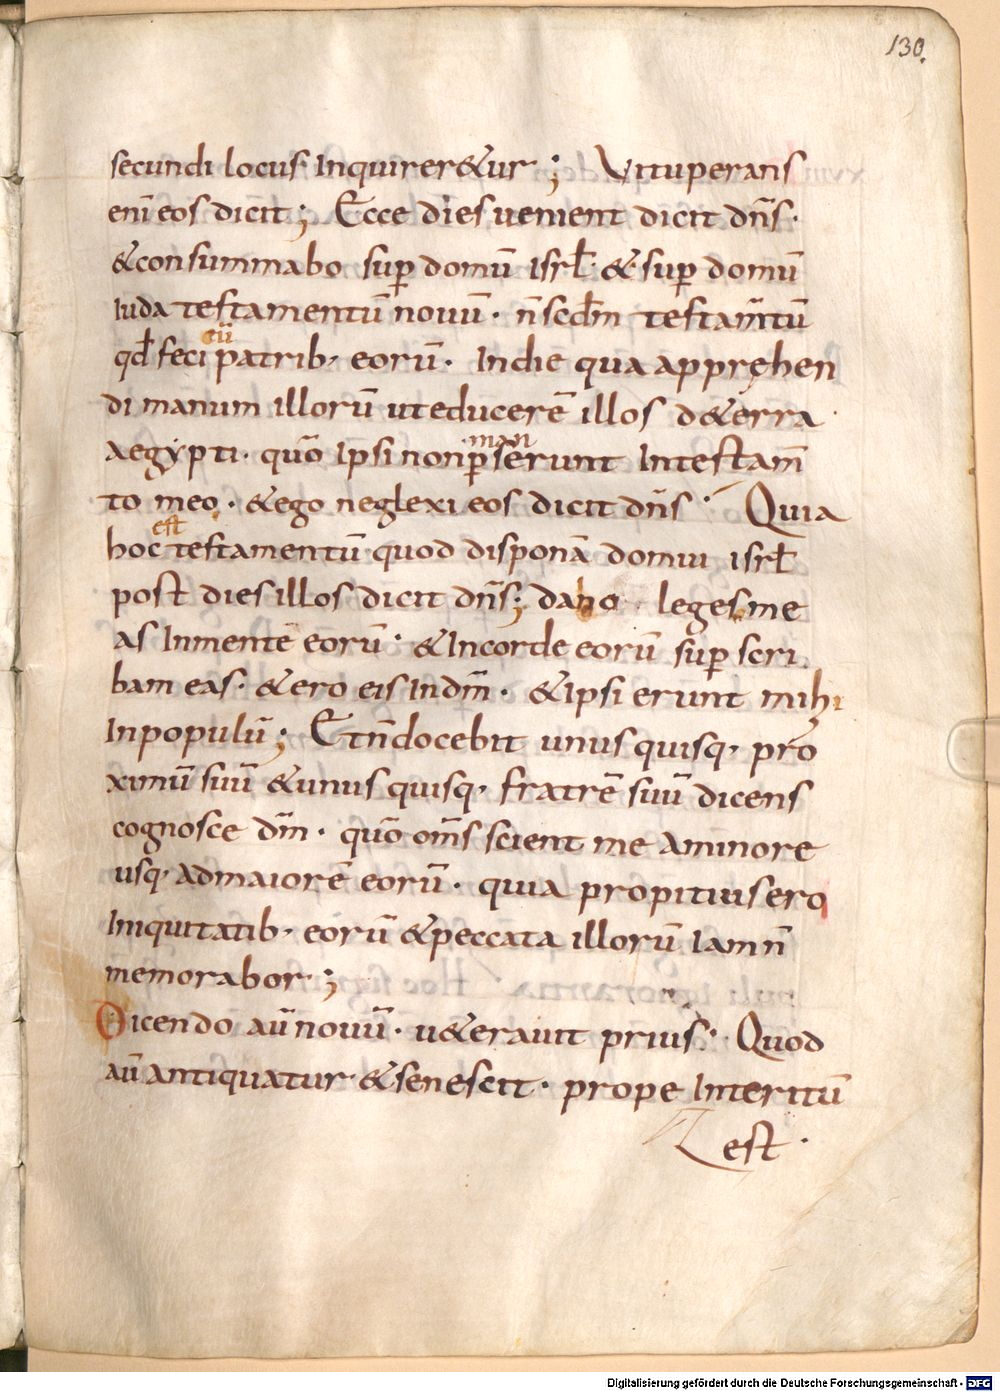 130.
secundi locus Inquirer&ur; Vituperans
eni̅ eos dicit; Ecce dies uenient dicit dn̅s·
&consummabo sup̱ domu̅ isrl̅· &sup̱ domu̅
Iuda testamentu̅ nouu̅· n̅ scd̅m testam̅tu̅
cu̅
qd̅ feci patrib· eoru̅· Indie qua apprehen
di manum illoru̅ uteducere̅ illos d&erra
man
aegypti· quo̅ Ipsi nonp̱serunt Intestam̅
to meo· &ego neglexi eos dicit dn̅s· Quia
est
hoc testamentu̅ quod dispona̅ domui isrl̅
post dies illos dicit dn̅s; dabo leges me
as Inmente̅ eoru̅· &Incorde eoru̅ sup̱ scri
bam eas· &ero eis Indm̅· &Ipsi erunt mihi
Inpopulu̅; Etn̅docebit unus quisq· pro
ximu̅ suu̅ &unus quisq· fratre̅ suu̅ dicens
cognosce dm̅· quo̅ om̅s scient me Aminore
usq· Admaiore̅ eoru̅· quia propitius ero
Iniquitatib· eoru̅ &peccata illoru̅ Iam n̅
memorabor;
Dicendo au̅ nouu̅· u&erauit prius· Quod
au̅ antiquatur &senescit· prope Interitu̅
est·
Digitalisierung gefördert durch die Deutsche Forschungsgemeinschaft - DFG